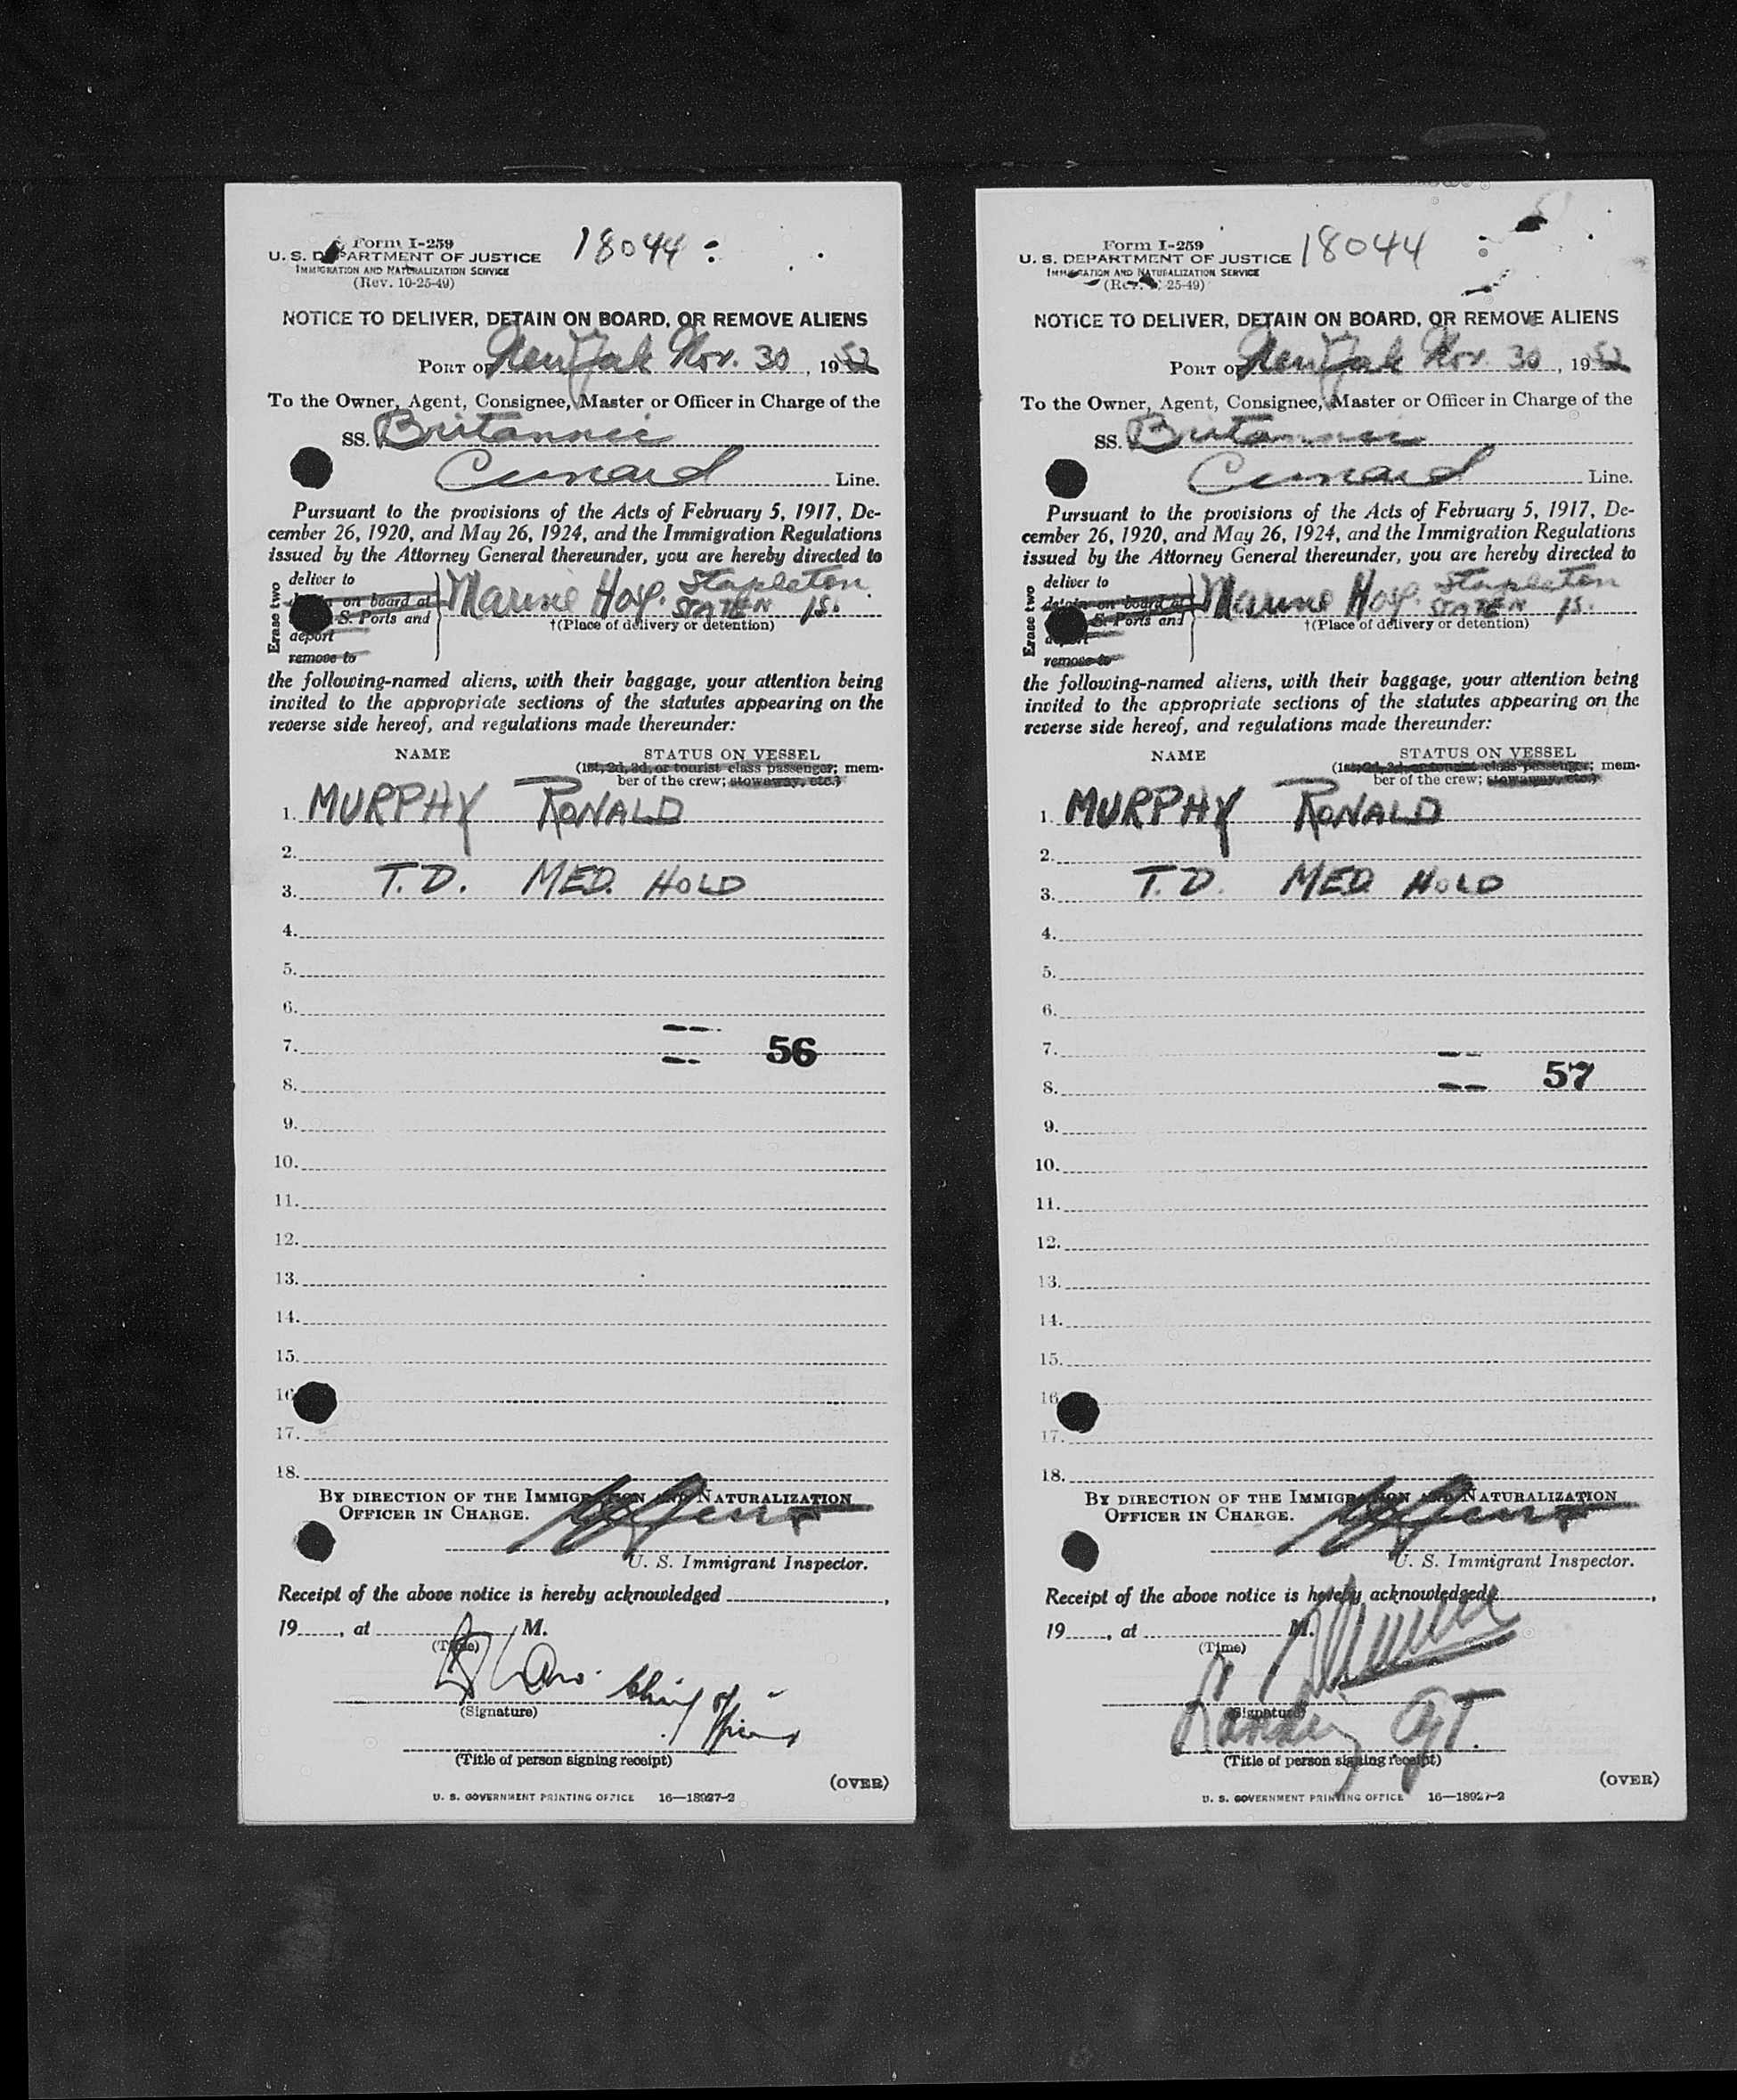 Form I-259
U. S. DEPARTMENT OF JUSTICE
18044
IMMIGRATION AND NATURALIZATION SERVICE
(Rev. 10-25-49)
NOTICE TO DELIVER, DETAIN ON BOARD, OR REMOVE ALIENS
PORT OF New York Nov. 30, 1952
To the Owner, Agent, Consignee, Master or Officer in Charge of the
SS. Britannic
Cunard Line.
Pursuant to the provisions of the Acts of February 5, 1917, De-
cember 26, 1920, and May 26, 1924, and the Immigration Regulations
issued by the Attorney General thereunder, you are hereby directed to
Erase two
deliver to
on board at
S. Ports and
deport
remove to
Marine Hosp. Stapleton
STATEN IS.
†(Place of delivery or detention)
the following-named aliens, with their baggage, your attention being
invited to the appropriate sections of the statutes appearing on the
reverse side hereof, and regulations made thereunder:
NAME STATUS ON VESSEL
(1st, 2d, 3d, or tourist class passenger; mem-
ber of the crew; stowaway, etc.)
1. MURPHY RONALD
2.
3. T.D. MED. HOLD
4.
5.
6.
7. 56
8.
9.
10.
11.
12.
13.
14.
15.
16
17.
18.
BY DIRECTION OF THE IMMIGRATION AND NATURALIZATION
OFFICER IN CHARGE.
U. S. Immigrant Inspector.
Receipt of the above notice is hereby acknowledged ,
19 , at M.
(Time)
(Signature)
(Title of person signing receipt)
(OVER)
U. S. GOVERNMENT PRINTING OFFICE 16—18927-2
Form I-259
U. S. DEPARTMENT OF JUSTICE
18044
IMMIGRATION AND NATURALIZATION SERVICE
(Rev. 25-49)
NOTICE TO DELIVER, DETAIN ON BOARD, OR REMOVE ALIENS
PORT OF New York Nov. 30, 1952
To the Owner, Agent, Consignee, Master or Officer in Charge of the
SS. Britannic
Cunard Line.
Pursuant to the provisions of the Acts of February 5, 1917, De-
cember 26, 1920, and May 26, 1924, and the Immigration Regulations
issued by the Attorney General thereunder, you are hereby directed to
Erase two
deliver to
detain on board at
S. Ports and
remove to
Marine Hosp. Stapleton
STATEN IS.
†(Place of delivery or detention)
the following-named aliens, with their baggage, your attention being
invited to the appropriate sections of the statutes appearing on the
reverse side hereof, and regulations made thereunder:
NAME STATUS ON VESSEL
(1st, 2d, 3d, or tourist class passenger; mem-
ber of the crew; stowaway, etc.)
1. MURPHY RONALD
2.
3. T.D. MED. HOLD
4.
5.
6.
7.
8. 57
9.
10.
11.
12.
13.
14.
15.
16
17.
18.
BY DIRECTION OF THE IMMIGRATION AND NATURALIZATION
OFFICER IN CHARGE.
U. S. Immigrant Inspector.
Receipt of the above notice is hereby acknowledged ,
19 , at M.
(Time)
(Signature)
(Title of person signing receipt)
(OVER)
U. S. GOVERNMENT PRINTING OFFICE 16—18927-2